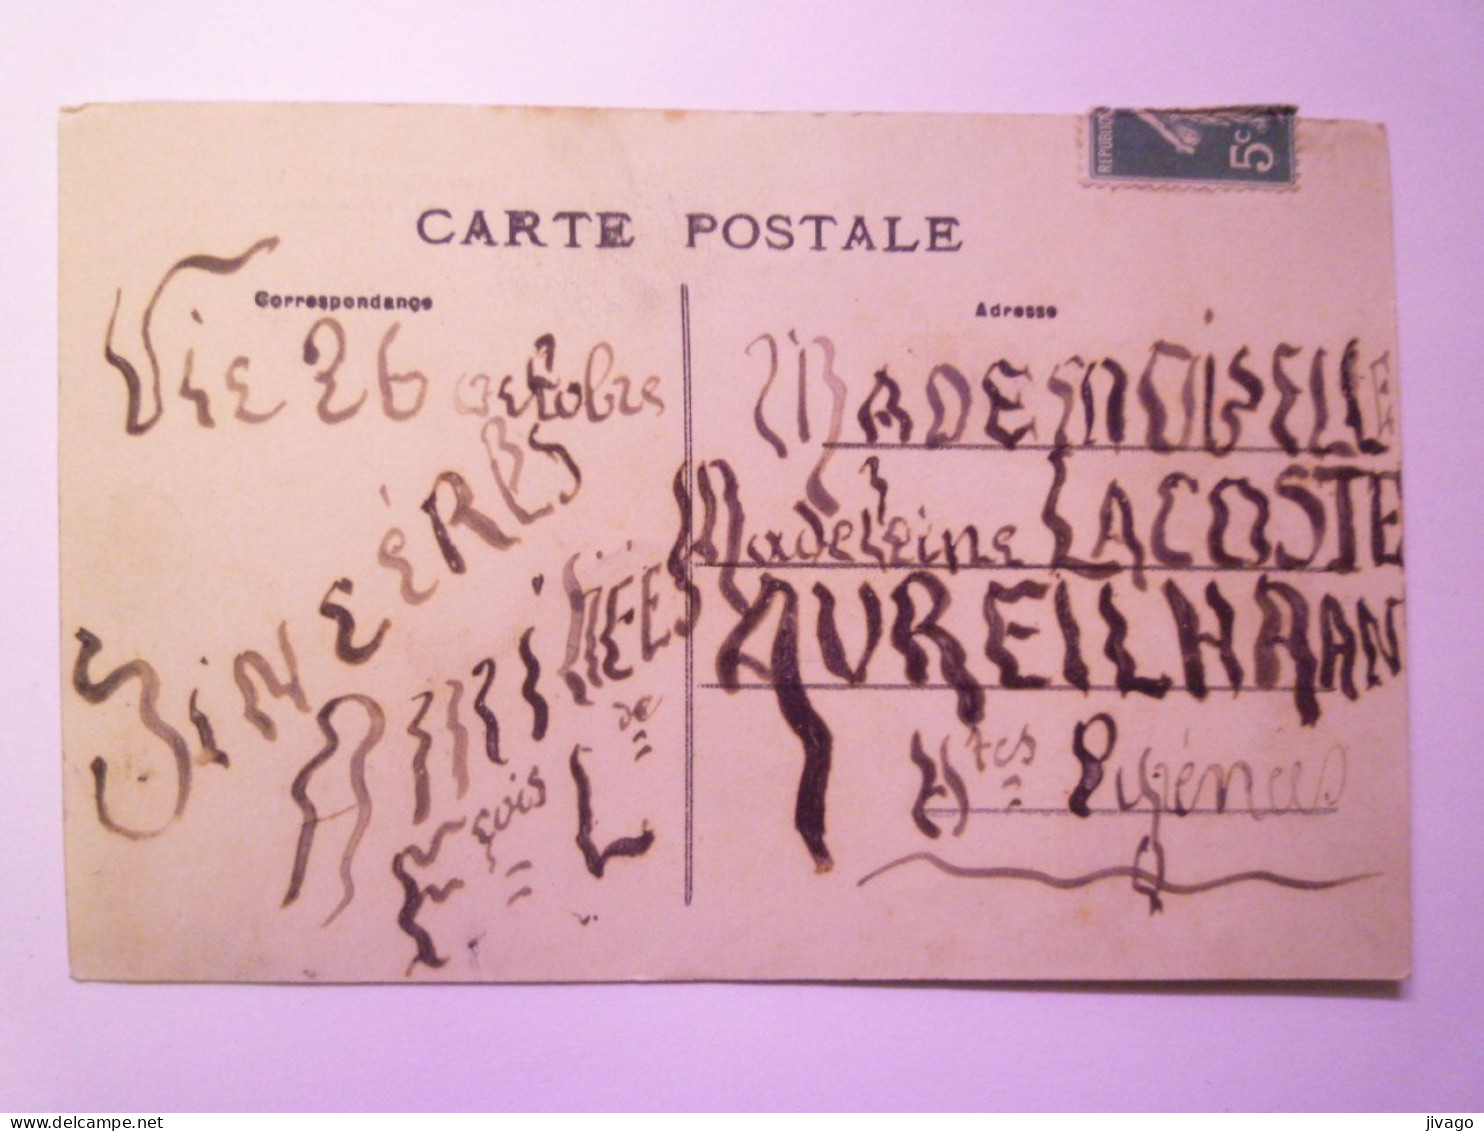 CARTE POSTALE
REPUBLIQUE
5c
Correspondance
Vic 26 octobre
SINCÈRES
AMITIÉES
Fçois de L
Adresse
MADEMOISELLE
Madeleine LACOSTE
AUREILHAN
Htes Pyrénées
delcampe.net
jivago